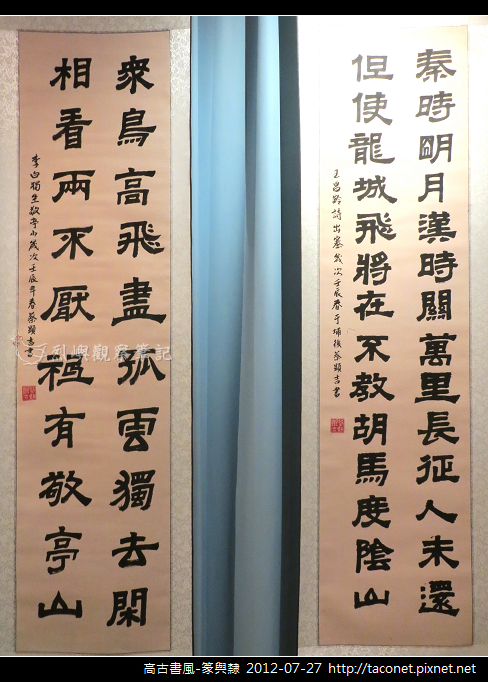 秦時明月漢時關萬里長征人未還
但使龍城飛將在不教胡馬度陰山
王昌齡詩出塞歲次壬辰春于埔後蔡顯吉書
衆鳥高飛盡孤雲獨去閑
相看兩不厭祗有敬亭山
李白獨坐敬亭山歲次壬辰年春蔡顯吉書
列嶼觀察筆記
高古書風-篆與隸 2012-07-27 http://taconet.pixnet.net